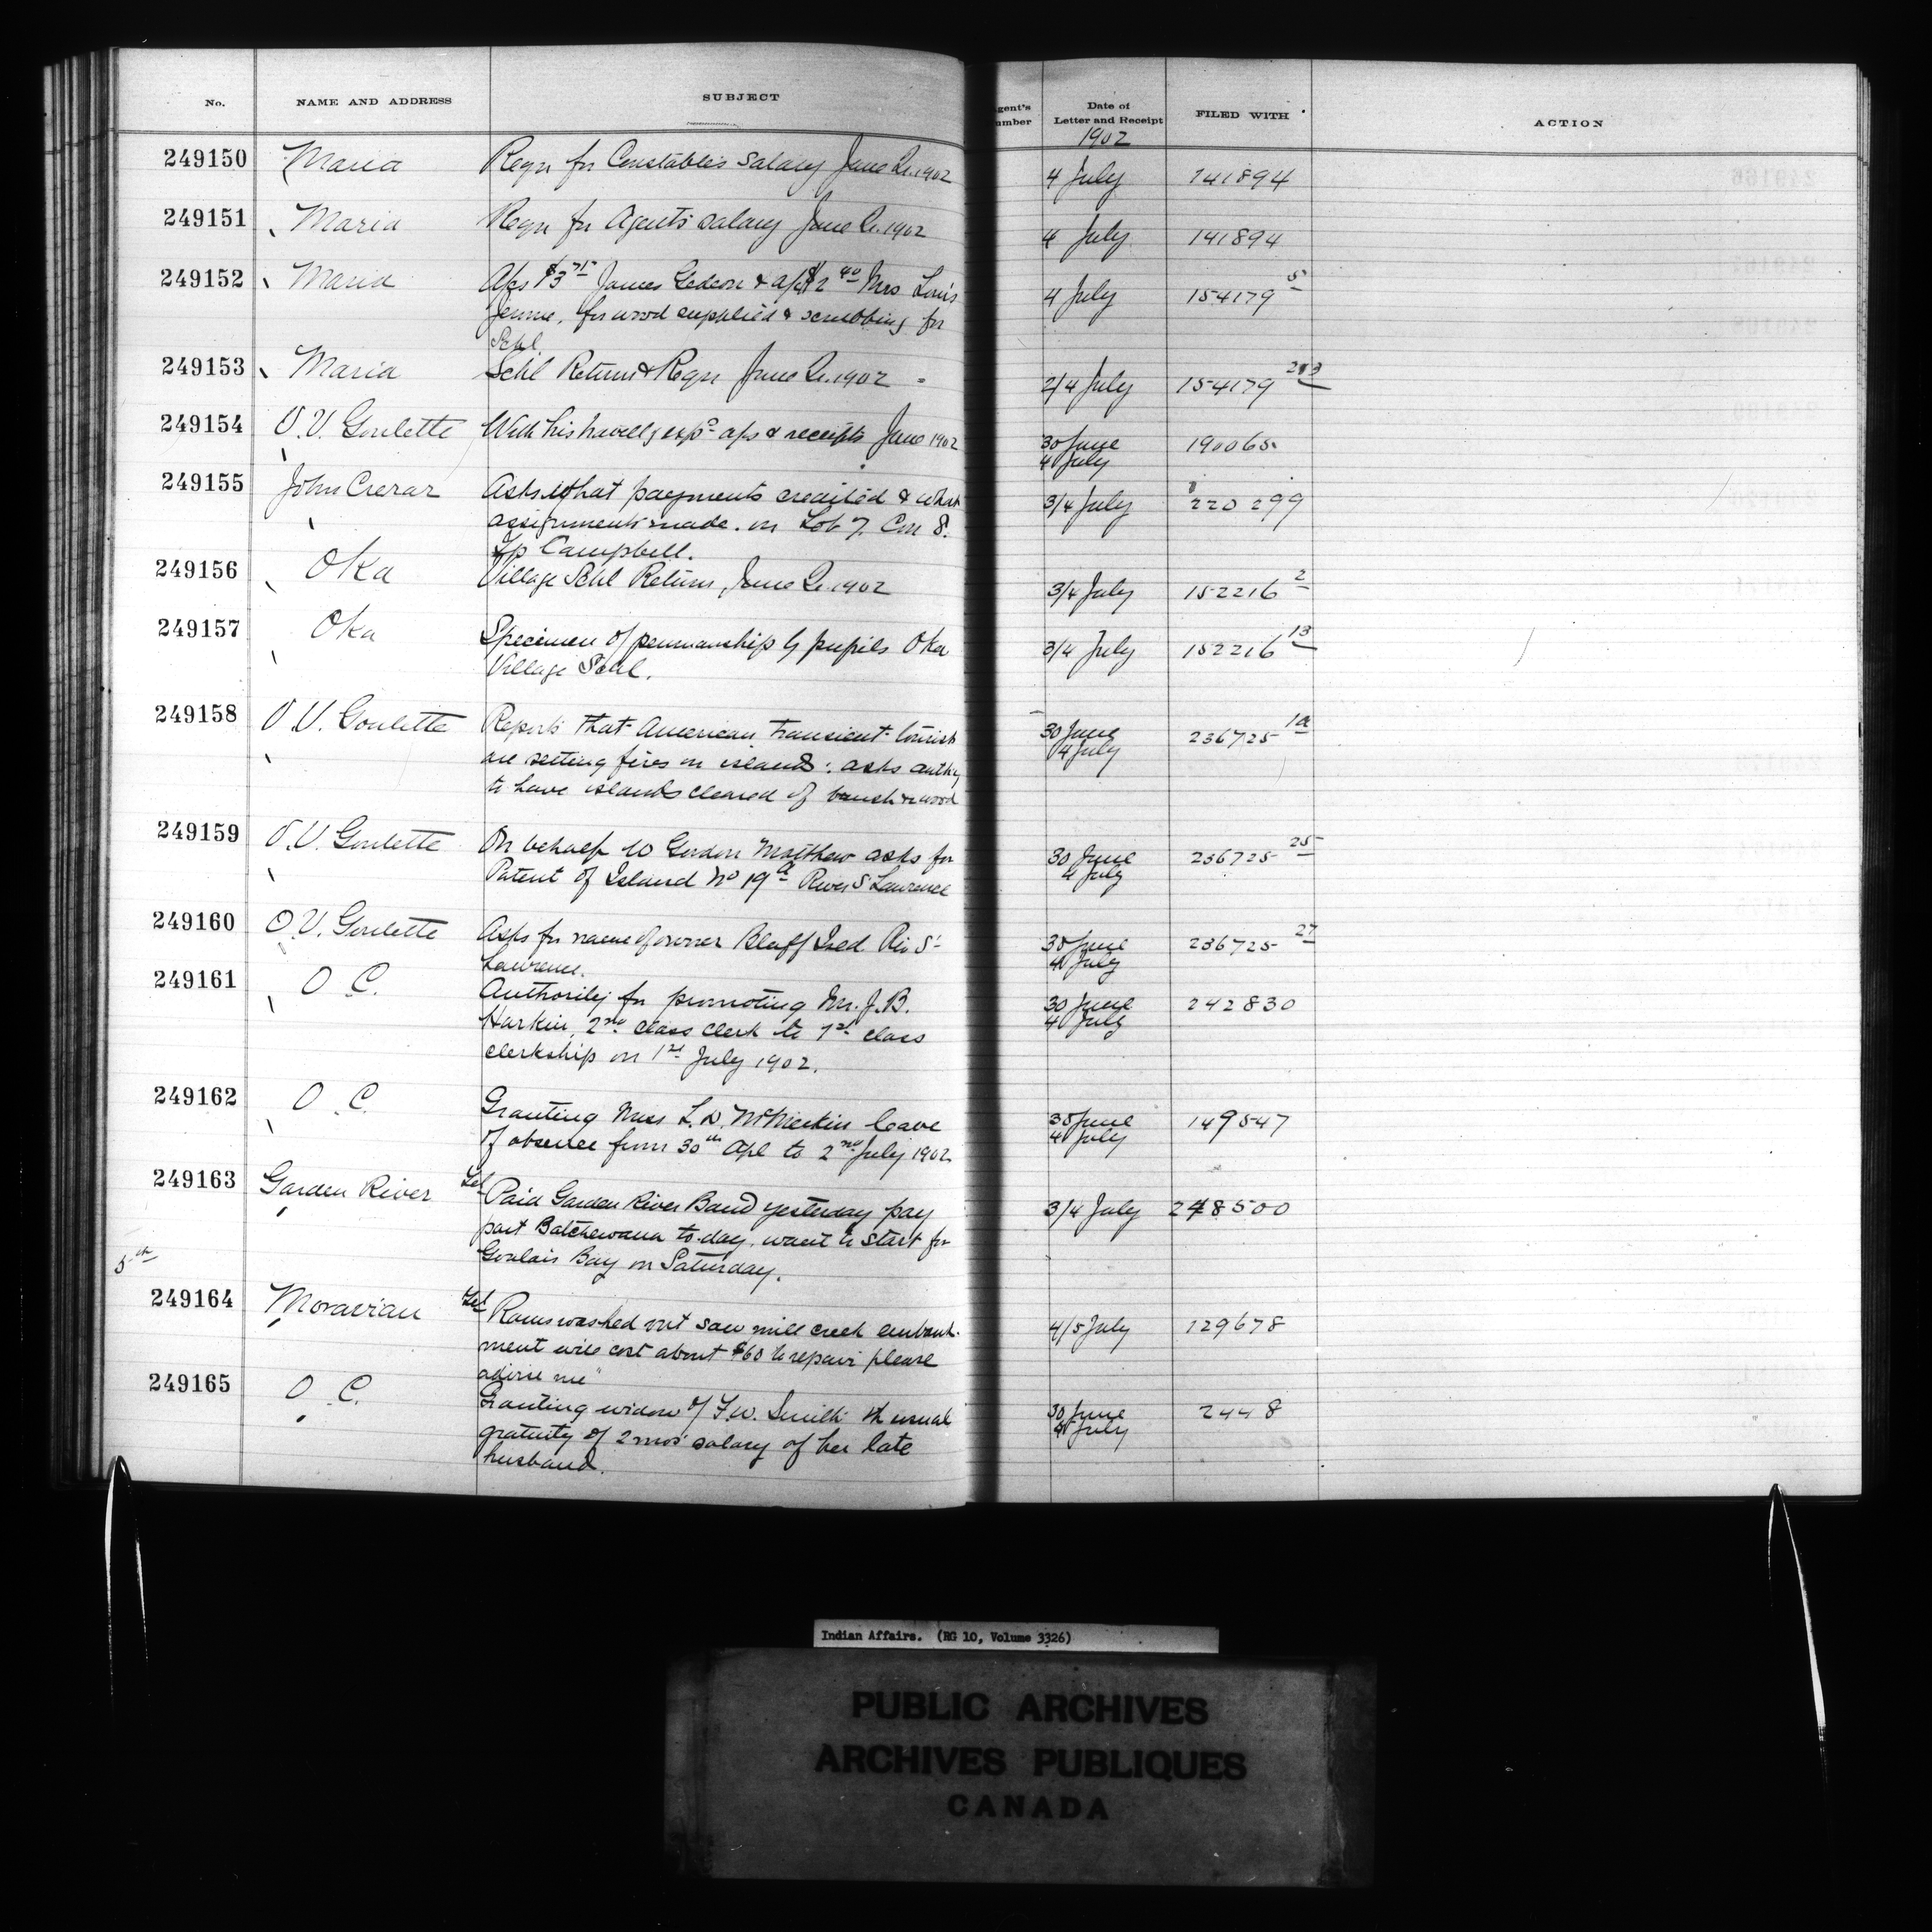 No. NAME AND ADDRESS SUBJECT gent's umber Date of Letter and Receipt FILED WITH ACTION
1902
249150 Maria Reqn for Constable's salary June Qr. 1902 4 July 141894
249151 Maria Reqn for Agent's salary June Qr. 1902 4 July 141894
249152 Maria A/cs $3 75 James Gedeon & a/c $2 40 Mrs Louis 4 July 154179 5
Jerome, for wood supplied & scrubbing for
Schl.
249153 Maria Schl Return & Reqn June Qr. 1902 2/4 July 154179
249154 O.V. Goulette With his travellg exps a/cs & receipts June 1902 30 June 190065
4 July
249155 John Crerar Asks what payments credited & what 3/4 July 220299
assignments made on Lot 7. Con 8.
Tp Campbell.
249156 Oka Village Schl Return, June Qr. 1902 3/4 July 152216 2
249157 Oka Specimen of penmanship by pupils Oka 3/4 July 152216 13
Village Schl.
249158 O.V. Goulette Reports that American transient tourists 30 June 236725 1a
are setting fires on islands: asks authy 4 July
to have islands cleared of brush wood
249159 O.V. Goulette On behalf W Gordon Matthew asks for 30 June 236725 25
Patent of Island No 19a River St Lawrence 4 July
249160 O.V. Goulette Asks for name of owner Bluff Isld. Riv St 30 June 236725 27
Lawrence. 4 July
249161 O.C. Authority for promoting Mr. J.B. 30 June 242830
Harkin, 2nd class clerk to 1st class 4 July
clerkship on 1st July 1902.
249162 O.C. Granting Miss L.D. McMeekin leave 30 June 149547
of absence from 30th Apl to 2nd July 1902 4 July
249163 Garden River Tel Paid Garden River Band yesterday pay 3/4 July 248500
part Batchewana to-day. want to start for
Goulais Bay on Saturday.
5th
249164 Moravian Tel "Rains washed out saw mill creek embank- 4/5 July 129678
ment will cost about $60 to repair please
advise me"
249165 O.C. Granting widow of F.W. Smith the usual 30 June 2448
gratuity of 2 mos' salary of her late 4 July
husband.
Indian Affairs. (RG 10, Volume 3326)
PUBLIC ARCHIVES
ARCHIVES PUBLIQUES
CANADA